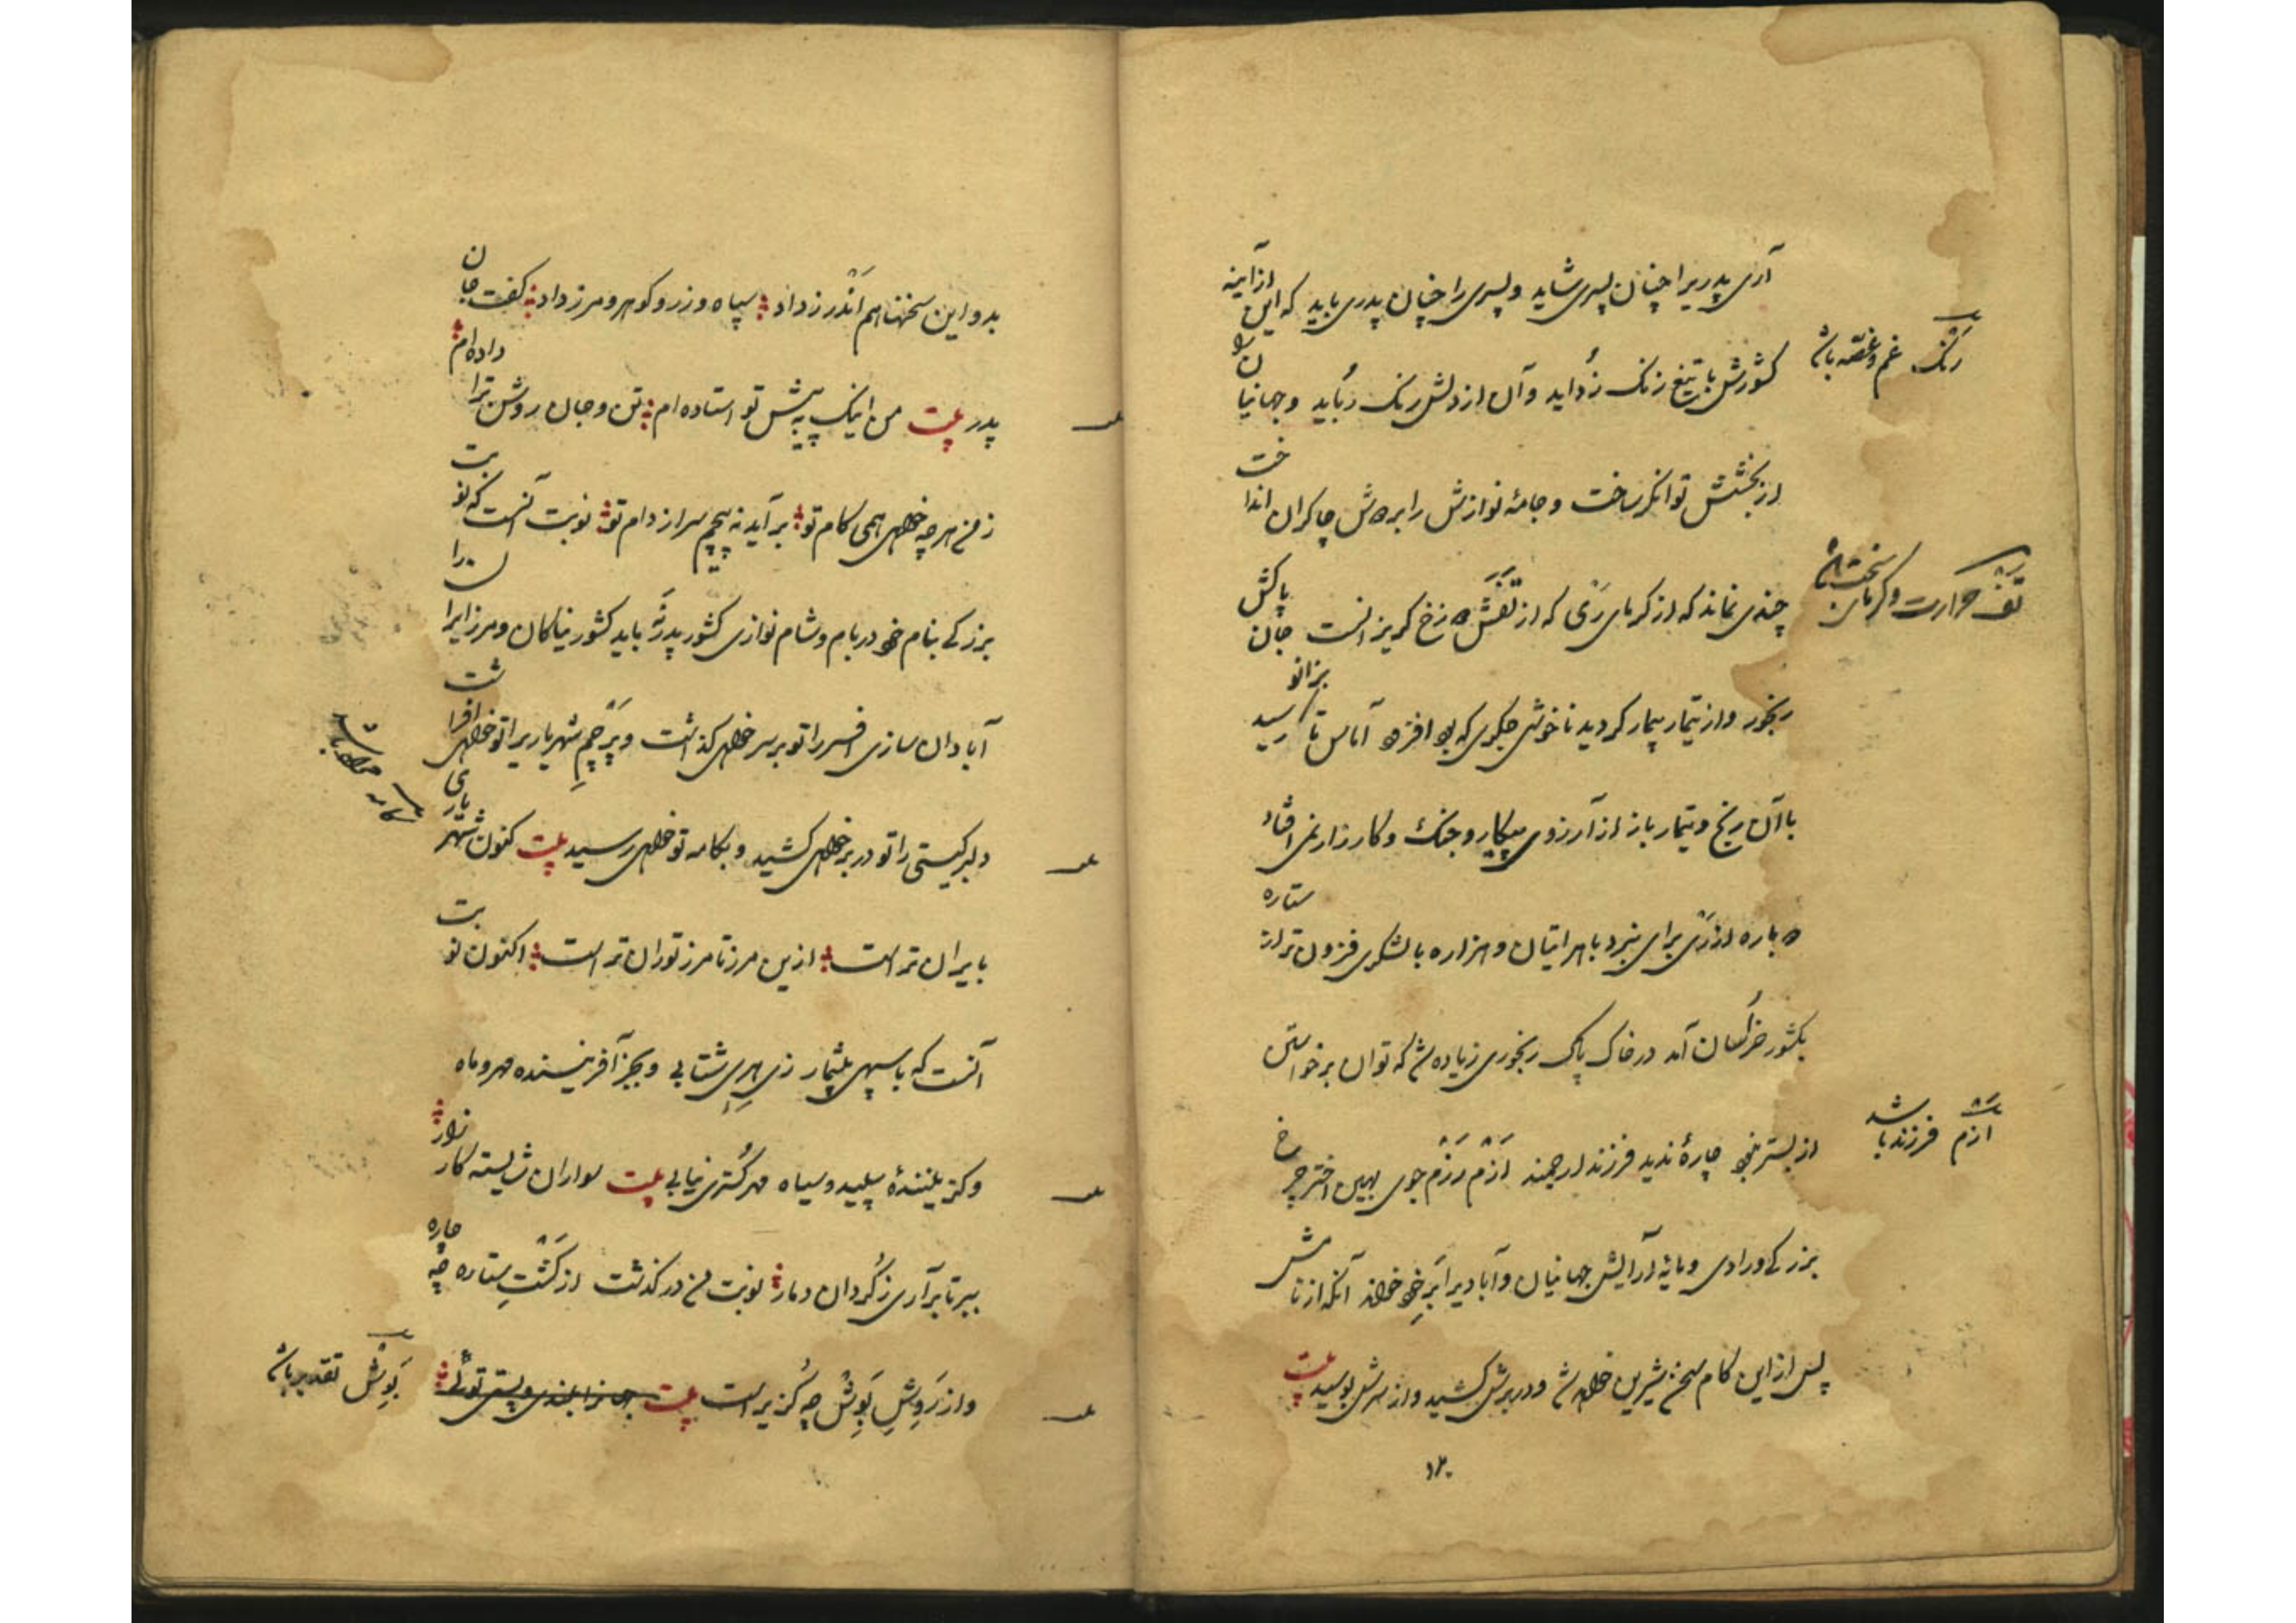 آری پدریرا چنان پسری شاید و پسری را چنان پدری باید که این از آینه
کشورش با تیغ زنگ زُداید و آن از دلش رنگ رُباید و جهانیان را
رنگ غم و غصّه باشد
از بخشش توانگر ساخت و جامهٔ نوازش را بر دوش چاکران انداخت
چندی نماند که از گرمای رَی که از تَفَش دوزخ گریزانست جان پاکش
تف حرارت و گرمای سخت باشد
رنجور و از تیمار بیمار گردید ناخوشی جگری که بود افزود آماس تا بزانو رسید
با آن رنج و تیمار باز از آرزوی پیکار و جنگ و کارزار نمی افتاد
دوباره از ری برای نبرد با هراتیان و هزاره با لشکری فزون تر از ستاره
بکشور خراسان آمد در خاک پاک رنجوری زیاده شد که توان برخواستن
از بستر نبود چارهٔ ندید فرزند ارجمند اَزَم رزم جوی بهین اختر چرخ
ازم فرزند باشد
بزرگی و رادی و مایهٔ آرایش جهانیان و آبادیرا بَرِ خود خواند آنگه از نامش
پس از این کام سخن شیرین خواهد شد و در برش کشید و از سرش بوسید بیت
بدو این سخنها هم اندرز داد سپاه و زر و گوهر و مرز داد گفت جان
پدر بیت من اینک به پیش تو استاده ام تن و جان روشن ترا داده ام
ز من هر چه خواهی همی کام تو برآید نه پیچم سر از دام تو نوبت آنست که نوبت
بزرگی بنام خود در بام و شام نوازی کشور پدرت باید کشور نیاکان و مرز ایران را
آبادان سازی افسر را تو بر سر خواهی گذاشت و پرچم شهریاریرا تو خواهی افراشت
دلبر گیتی را تو در بر خواهی کشید و بکامه تو خواهی رسید بیت کنون شهریاری
بایران تراست ازین مرز تا مرز توران تراست اکنون نوبت
آنست که با سپهی بیشمار زی هری شتابی و بجز آفریننده مهر و ماه
و گزینندهٔ سپید و سیاه مهرگستری نیابی بیت سواران شایسته کارزار
ببر تا برآری ز گردان دمار نوبت من در گذشت از گشت ستاره چه چاره
و از روش بَوِش چه گزیر است بیت جهانرا بلندی و پستی توئی
بَوِش تقدیر باشد